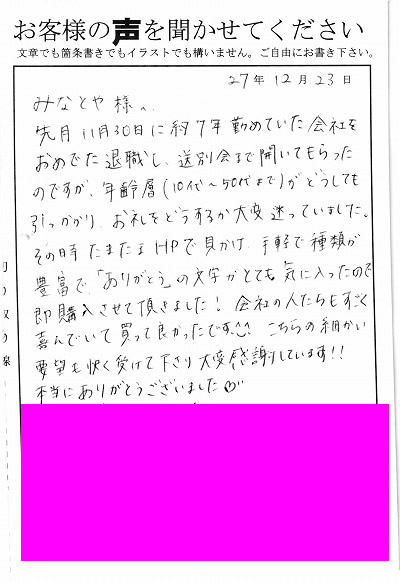 お客様の声を聞かせてください
文章でも箇条書きでもイラストでも構いません。ご自由にお書き下さい。
27年12月23日
みなとや様。
先月11月30日に約7年勤めていた会社を
おめでた退職し、送別会まで開いてもらった
のですが、年齢層(10代〜50代まで)がどうしても
引っかかり、お礼をどうするか大変迷っていました。
その時たまたまHPで見かけ、手軽で種類が
豊富で、「ありがとう」の文字がとても気に入ったので
即購入させて頂きました!会社の人たちもすごく
喜んでいて買って良かったです^^ こちらの細かい
要望も快く受けて下さり大変感謝しています!!
本当にありがとうございました♡